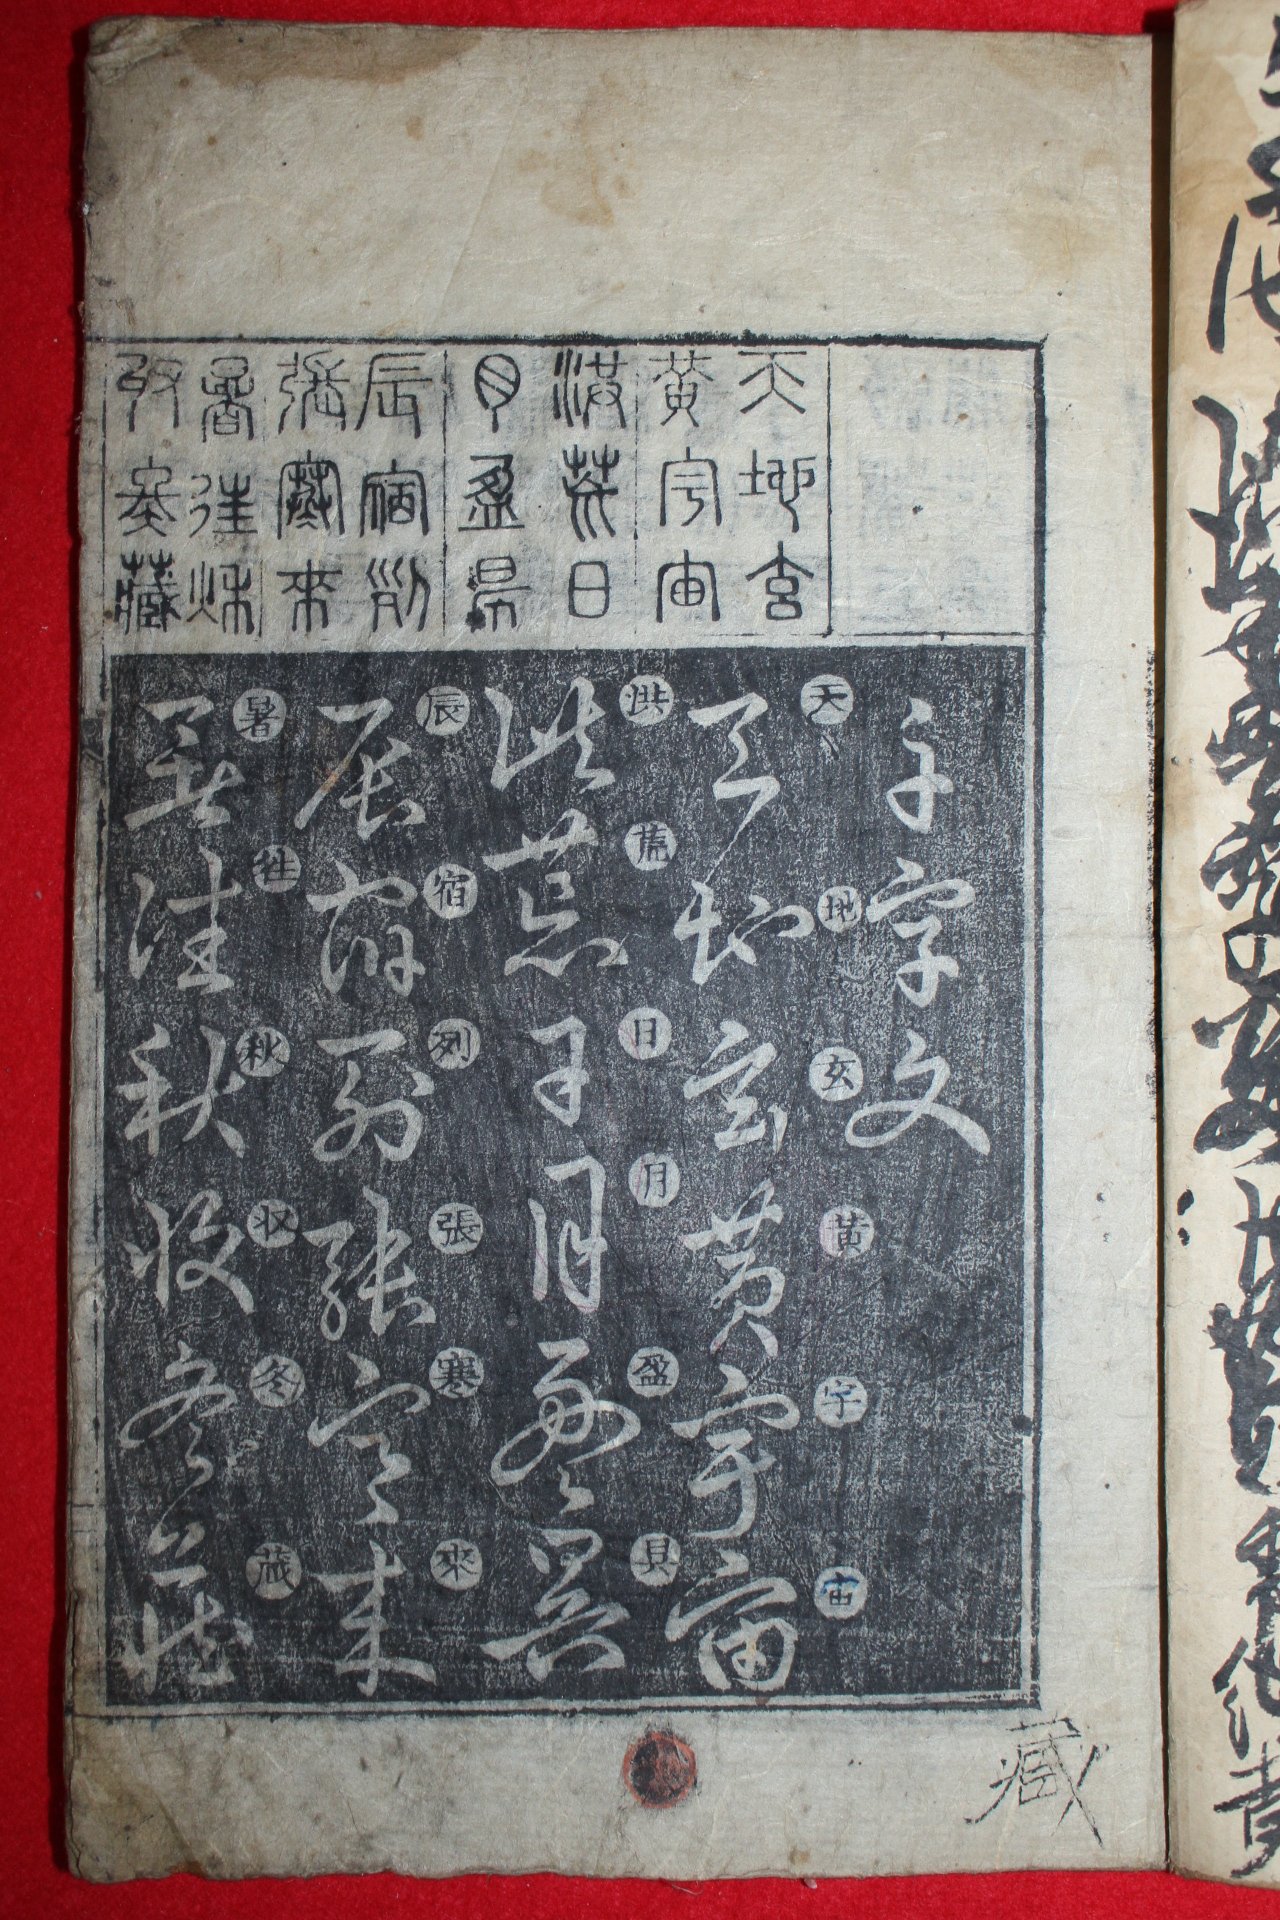 天地玄
黃宇宙
洪荒日
月盈昃
辰宿列
張寒來
暑往秋
收冬藏
千字文
天地玄黄宇宙
天地玄黃宇宙
洪荒日月盈昃
洪荒日月盈昃
辰宿列張寒來
辰宿列張寒来
暑往秋収冬藏
暑往秋收冬藏
藏